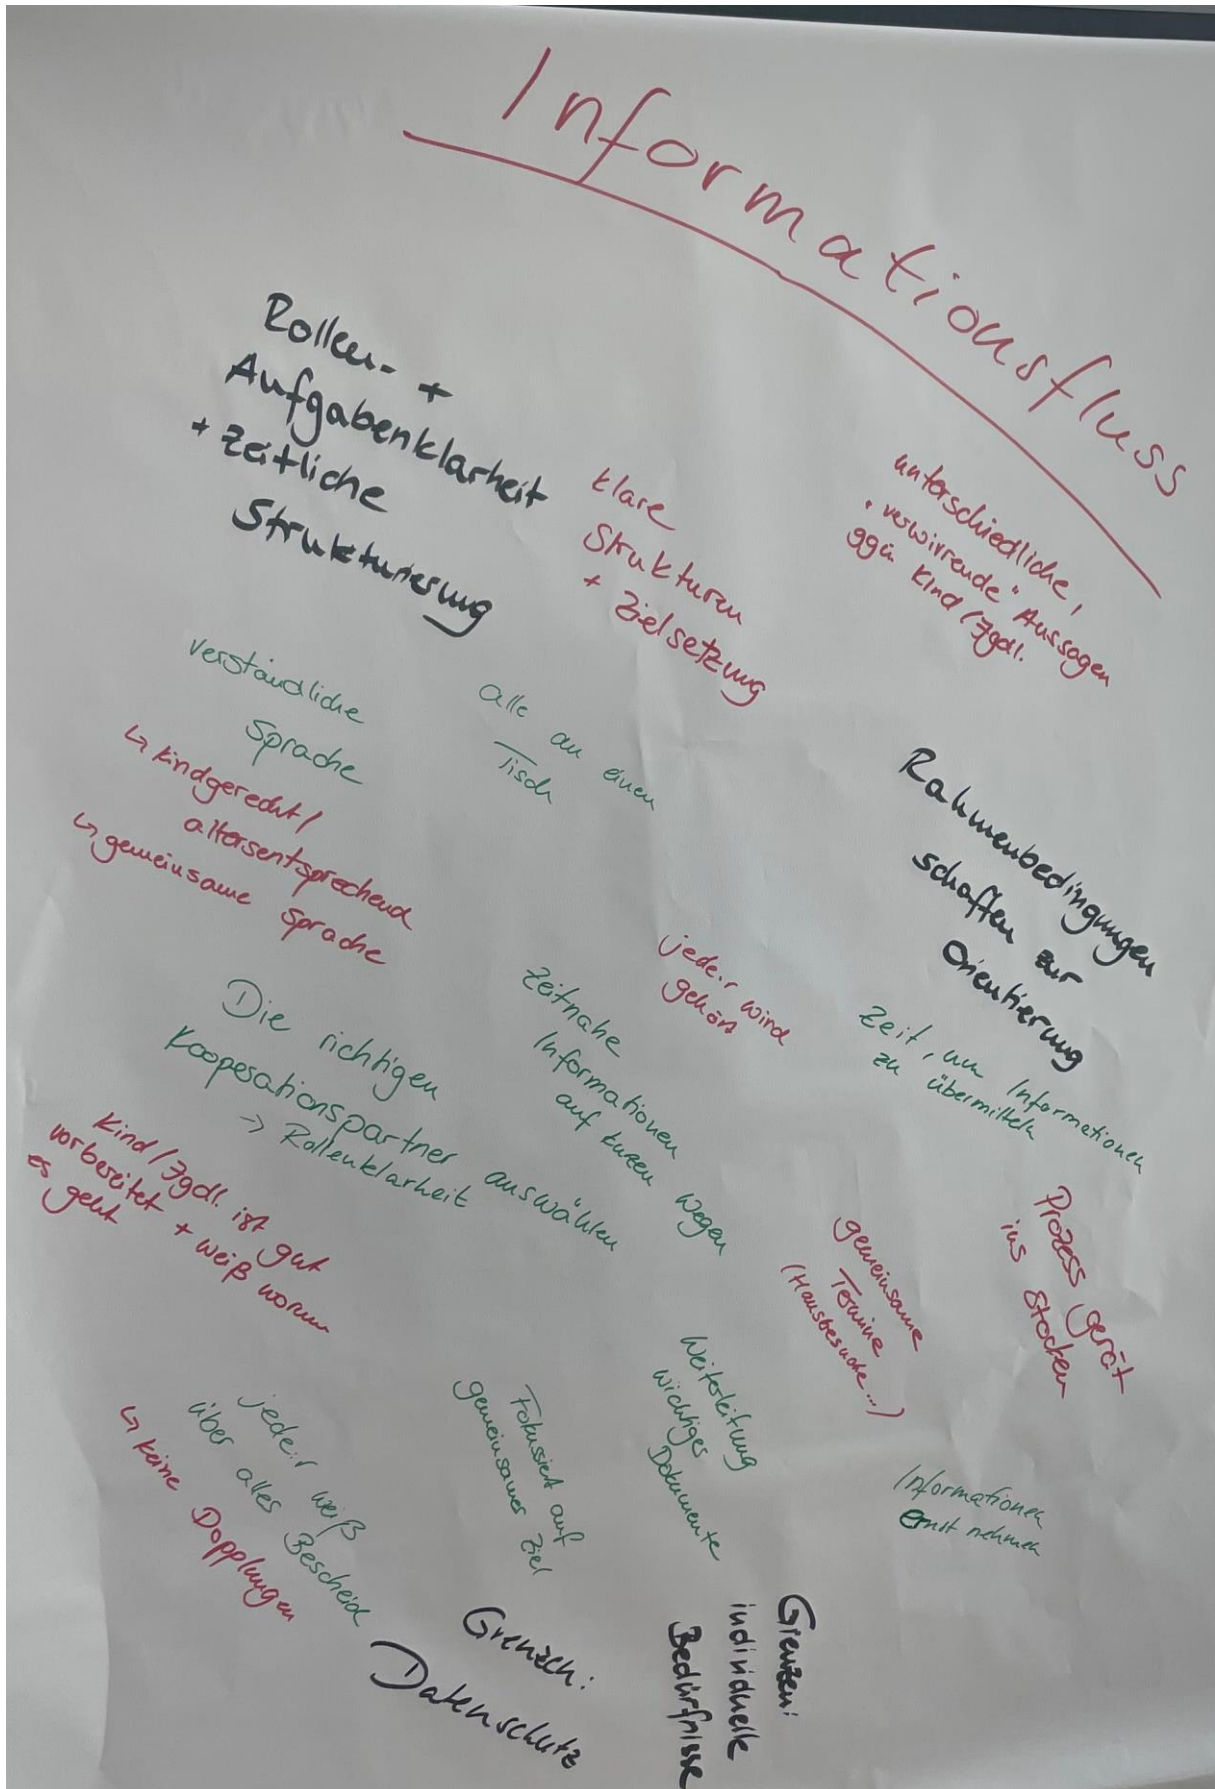 Informationsfluss
Rollen- +
Aufgabenklarheit
+ zeitliche
Strukturierung
klare
Strukturen
+ Zielsetzung
unterschiedliche,
"verwirrende" Aussagen
ggü. Kind/Jgdl.
verständliche
Sprache
↳ kindgerecht/
altersentsprechend
↳ gemeinsame Sprache
alle an einen
Tisch
Rahmenbedingungen
schaffen zur
Orientierung
jede:r wird
gehört
Zeitnahe
Informationen
auf kurzen Wegen
Zeit, um Informationen
zu übermitteln
Die richtigen
Kooperationspartner auswählen
→ Rollenklarheit
Kind/Jgdl. ist gut
vorbereitet + weiß worum
es geht
gemeinsame
Termine
(Hausbesuche...)
Prozess gerät
ins Stocken
jede:r weiß
über alles Bescheid
↳ keine Dopplungen
Fokussiert auf
gemeinsames Ziel
Weiterleitung
wichtiger
Dokumente
Informationen
ernst nehmen
Grenzen:
Datenschutz
Grenzen:
individuelle
Bedürfnisse